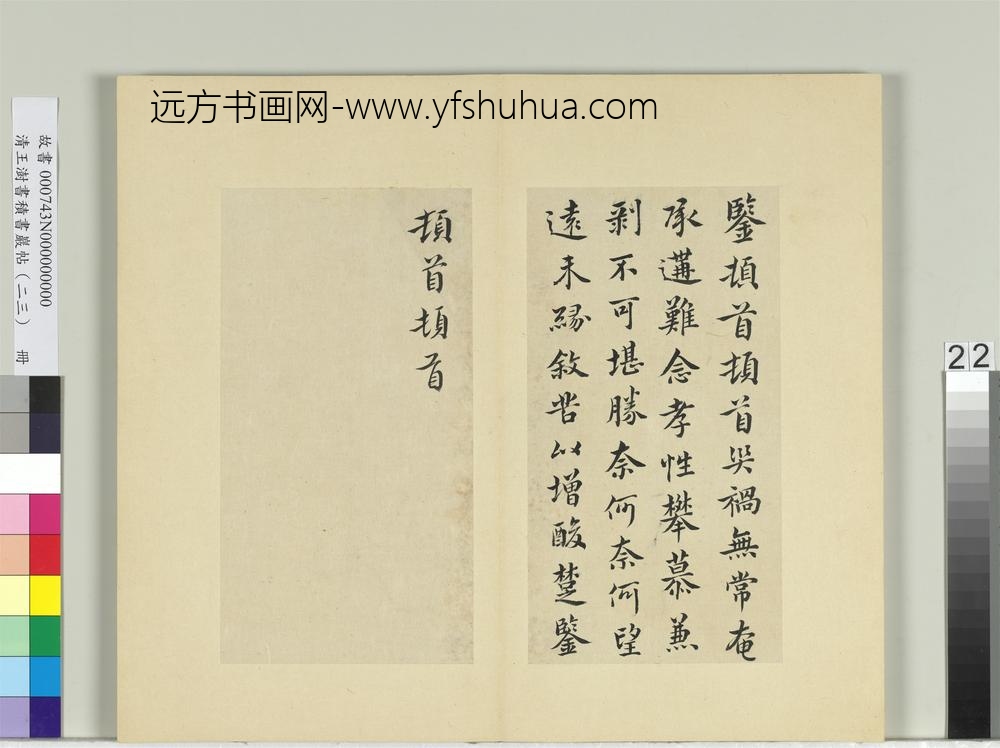 远方书画网-www.yfshuhua.com
鑒頓首頓首哭禍無常奄
承遘難念孝性攀慕兼
剥不可堪勝奈何奈何望
遠未緣敘苦以增酸楚鑒
頓首頓首
故書 000743N000000000
清王澍書積書巖帖(二三) 冊
22